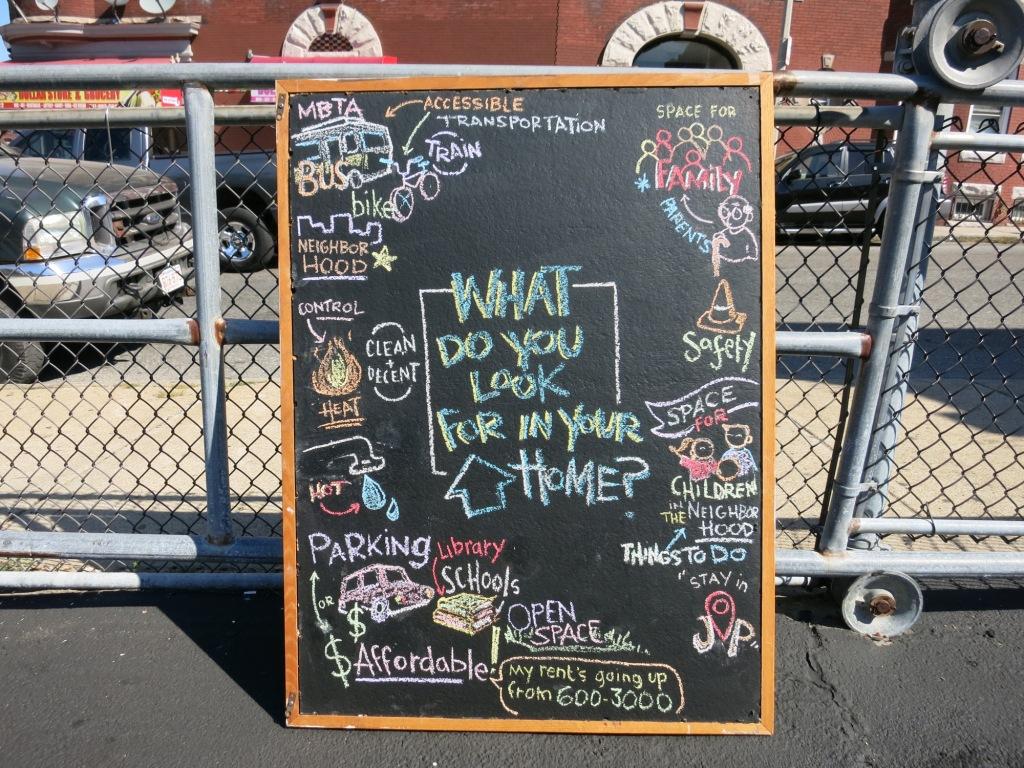 DOLLAR STORE & GROCERY
MBTA
ACCESSIBLE
TRANSPORTATION
BUS
TRAIN
bike
NEIGHBOR
HOOD
CONTROL
HEAT
CLEAN
+
DECENT
HOT
WHAT
DO YOU
LOOK
FOR IN YOUR
HOME?
SPACE FOR
FAMILY
PARENTS
Safety
SPACE
FOR
CHILDREN
IN
THE NEIGHBOR
HOOD
THINGS TO DO
"STAY in
JP.
PARKING
Library
SCHOOLS
OR
$
OPEN
SPACE
$ Affordable!
My rent's going up
from 600-3000